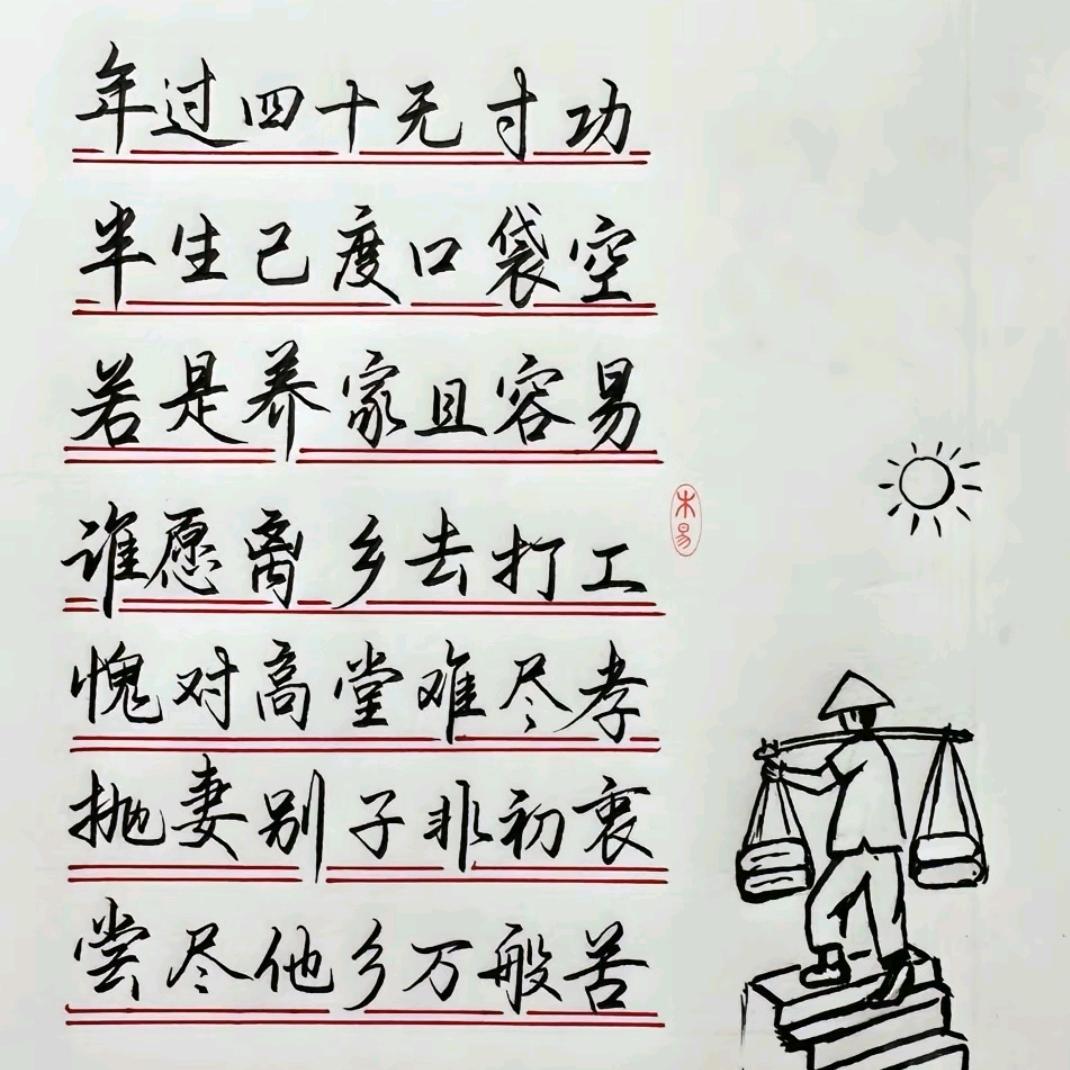 年过四十无寸功
半生已度口袋空
若是养家且容易
谁愿离乡去打工
愧对高堂难尽孝
抛妻别子非初衷
尝尽他乡万般苦
木易